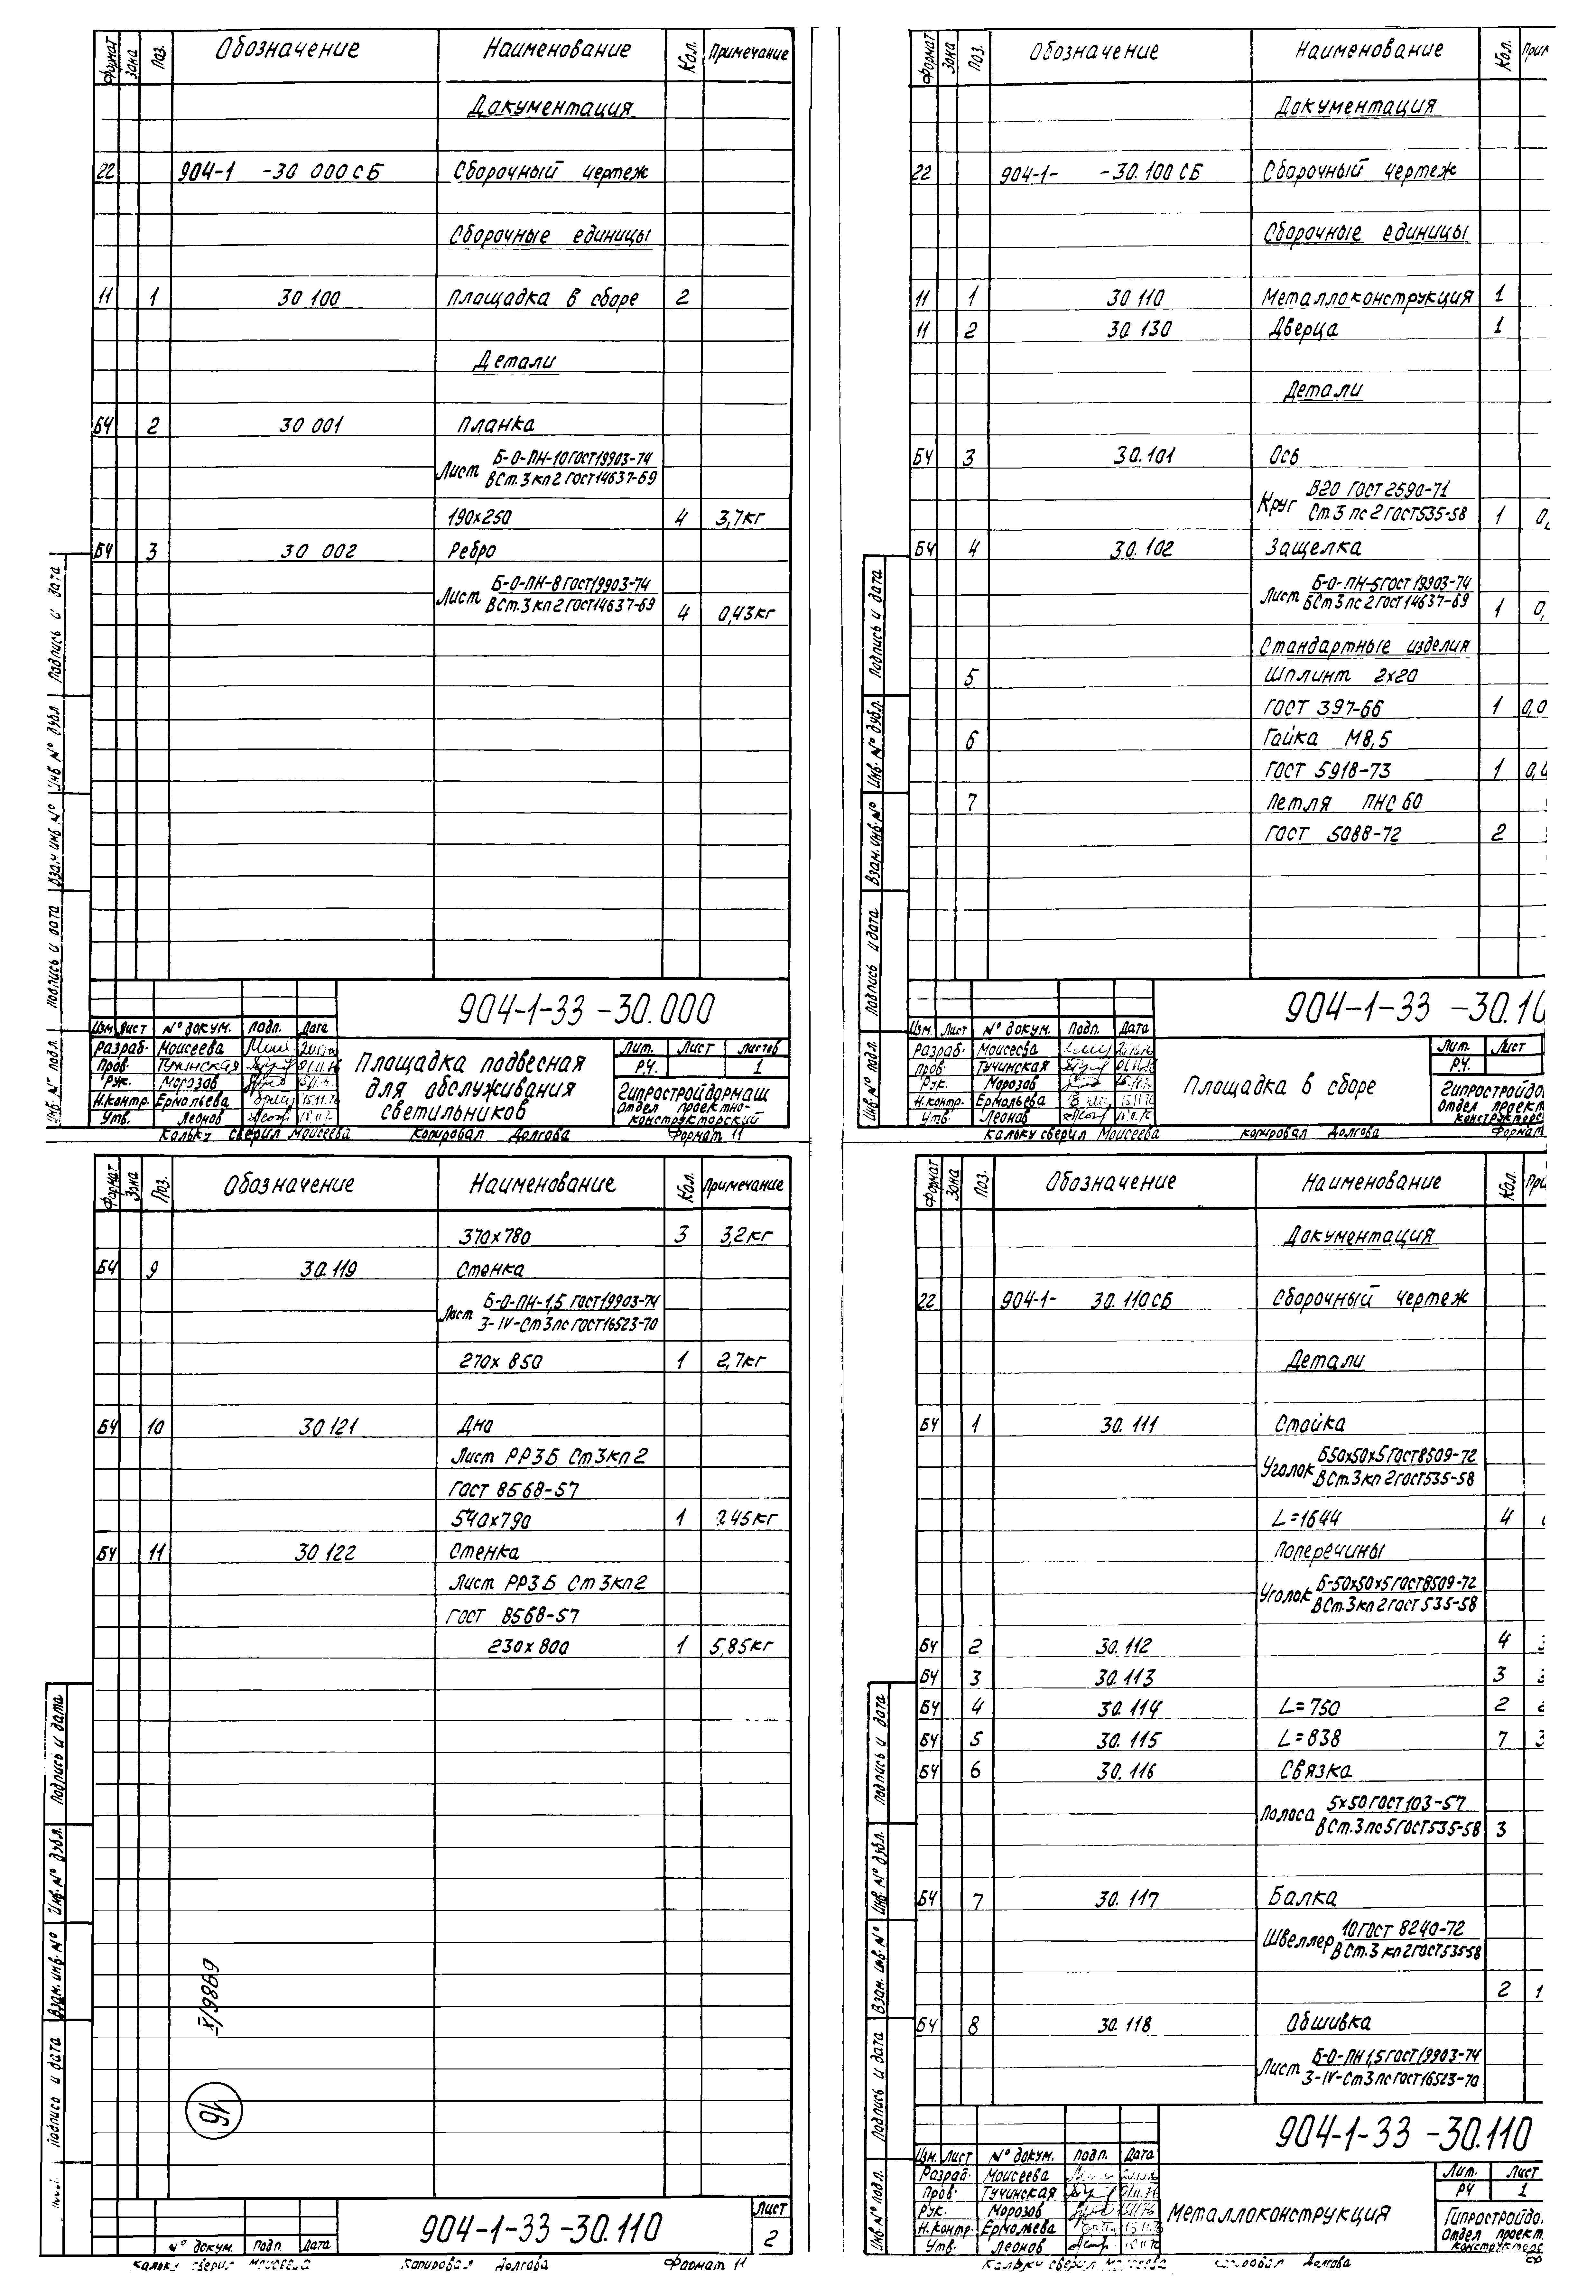 Формат Зона Поз. Обозначение Наименование Кол. Примечание
Документация
22 904-1 -30 000 СБ Сборочный чертеж
Сборочные единицы
11 1 30 100 Площадка в сборе 2
Детали
БЧ 2 30 001 Планка
Лист Б-О-ПН-10 ГОСТ 19903-74
ВСт.3 кп 2 ГОСТ 14637-69
190х250 4 3,7кг
БЧ 3 30 002 Ребро
Лист Б-О-ПН-8 ГОСТ 19903-74
ВСт.3 кп 2 ГОСТ 14637-69
4 0,43кг
Подпись и дата
Инв № дубл
Взам инв. №
Подпись и дата
Инв № подл.
904-1-33 -30.000
Изм Лист № докум. Подп. Дата
Разраб. Моисеева
Пров. Тучинская
Рук. Морозов
Н.контр. Ермольева
Утв. Леонов
Площадка подвесная
для обслуживания
светильников
Лит. Лист Листов
Р.Ч. 1
Гипростройдормаш
Отдел проектно-
конструкторский
Кальку сверил Моисеева Копировал Долгова Формат 11
Формат Зона Поз. Обозначение Наименование Кол. Прим
Документация
22 904-1- -30.100 СБ Сборочный чертеж
Сборочные единицы
11 1 30 110 Металлоконструкция 1
11 2 30. 130 Дверца 1
Детали
БЧ 3 30.101 Ось
Круг В20 ГОСТ 2590-71
Ст.3 пс 2 ГОСТ 535-58 1 0,
БЧ 4 30.102 Защелка
Лист Б-О-ПН-5 ГОСТ 19903-74
БСт 3 пс 2 ГОСТ 14637-69 1 0,
Стандартные изделия
5 Шплинт 2х20
ГОСТ 397-66 1 0,0
6 Гайка М8,5
ГОСТ 5918-73 1
7 Петля ПНС 60
ГОСТ 5088-72 2
Подпись и дата
Инв. № дубл.
Взам. инв. №
Подпись и дата
Инв. № подл.
904-1-33 -30.10
Изм. Лист № докум. Подп. Дата
Разраб. Моисеева
Пров. Тучинская
Рук. Морозов
Н.контр. Ермольева
Утв. Леонов
Площадка в сборе
Лит. Лист
Р.Ч.
Гипростройдо
Отдел проект
конструкторс
Кальку сверил Моисеева Копировал Долгова Формат
Формат Зона Поз. Обозначение Наименование Кол. Примечание
370х780 3 3,2кг
БЧ 9 30.119 Стенка
Лист Б-О-ПН-1,5 ГОСТ 19903-74
3-IV-Ст 3 пс ГОСТ 16523-70
270х 850 1 2,7кг
БЧ 10 30 121 Дно
Лист РРЗБ Ст 3 кп 2
ГОСТ 8568-57
540х790 1 45кг
БЧ 11 30 122 Стенка
Лист РРЗБ Ст 3 кп 2
ГОСТ 8568-57
230х800 1 5,85кг
Подпись и дата
Инв. № дубл.
Взам. инв. №
Подпись и дата
6986/х
16
904-1-33 -30.110
№ докум. Подп. Дата
Лист
2
Кальку сверил Моисеева Копировал Долгова Формат 11
Формат Зона Поз. Обозначение Наименование Кол. При
Документация
22 904-1- 30. 110 СБ Сборочный чертеж
Детали
БЧ 1 30. 111 Стойка
Уголок Б50х50х5 ГОСТ 8509-72
ВСт.3 кп 2 ГОСТ 535-58
L=1644 4
Поперечины
Уголок Б-50х50х5 ГОСТ 8509-72
ВСт.3 кп 2 ГОСТ 535-58
БЧ 2 30.112 4
БЧ 3 30. 113 3
БЧ 4 30. 114 L=750 2
БЧ 5 30. 115 L=838 7 3
БЧ 6 30. 116 Связка
Полоса 5х50 ГОСТ 103-57
ВСт.3 пс 5 ГОСТ 535-58 3
БЧ 7 30. 117 Балка
Швеллер 10 ГОСТ 8240-72
ВСт.3 кп 2 ГОСТ 535-58
2 1
БЧ 8 30. 118 Обшивка
Лист Б-О-ПН 1,5 ГОСТ 19903-74
3-IV-Ст 3 пс ГОСТ 16523-70
Подпись и дата
Инв. № дубл.
Взам. инв. №
Подпись и дата
Инв. № подл.
904-1-33 -30.110
Изм. Лист № докум. Подп. Дата
Разраб. Моисеева
Пров. Тучинская
Рук. Морозов
Н.контр. Ермольева
Утв. Леонов
Металлоконструкция
Лит. Лист
РЧ 1
Гипростройдо
Отдел проект.
конструкторс
Кальку сверил Моисеева Копировал Долгова Ф